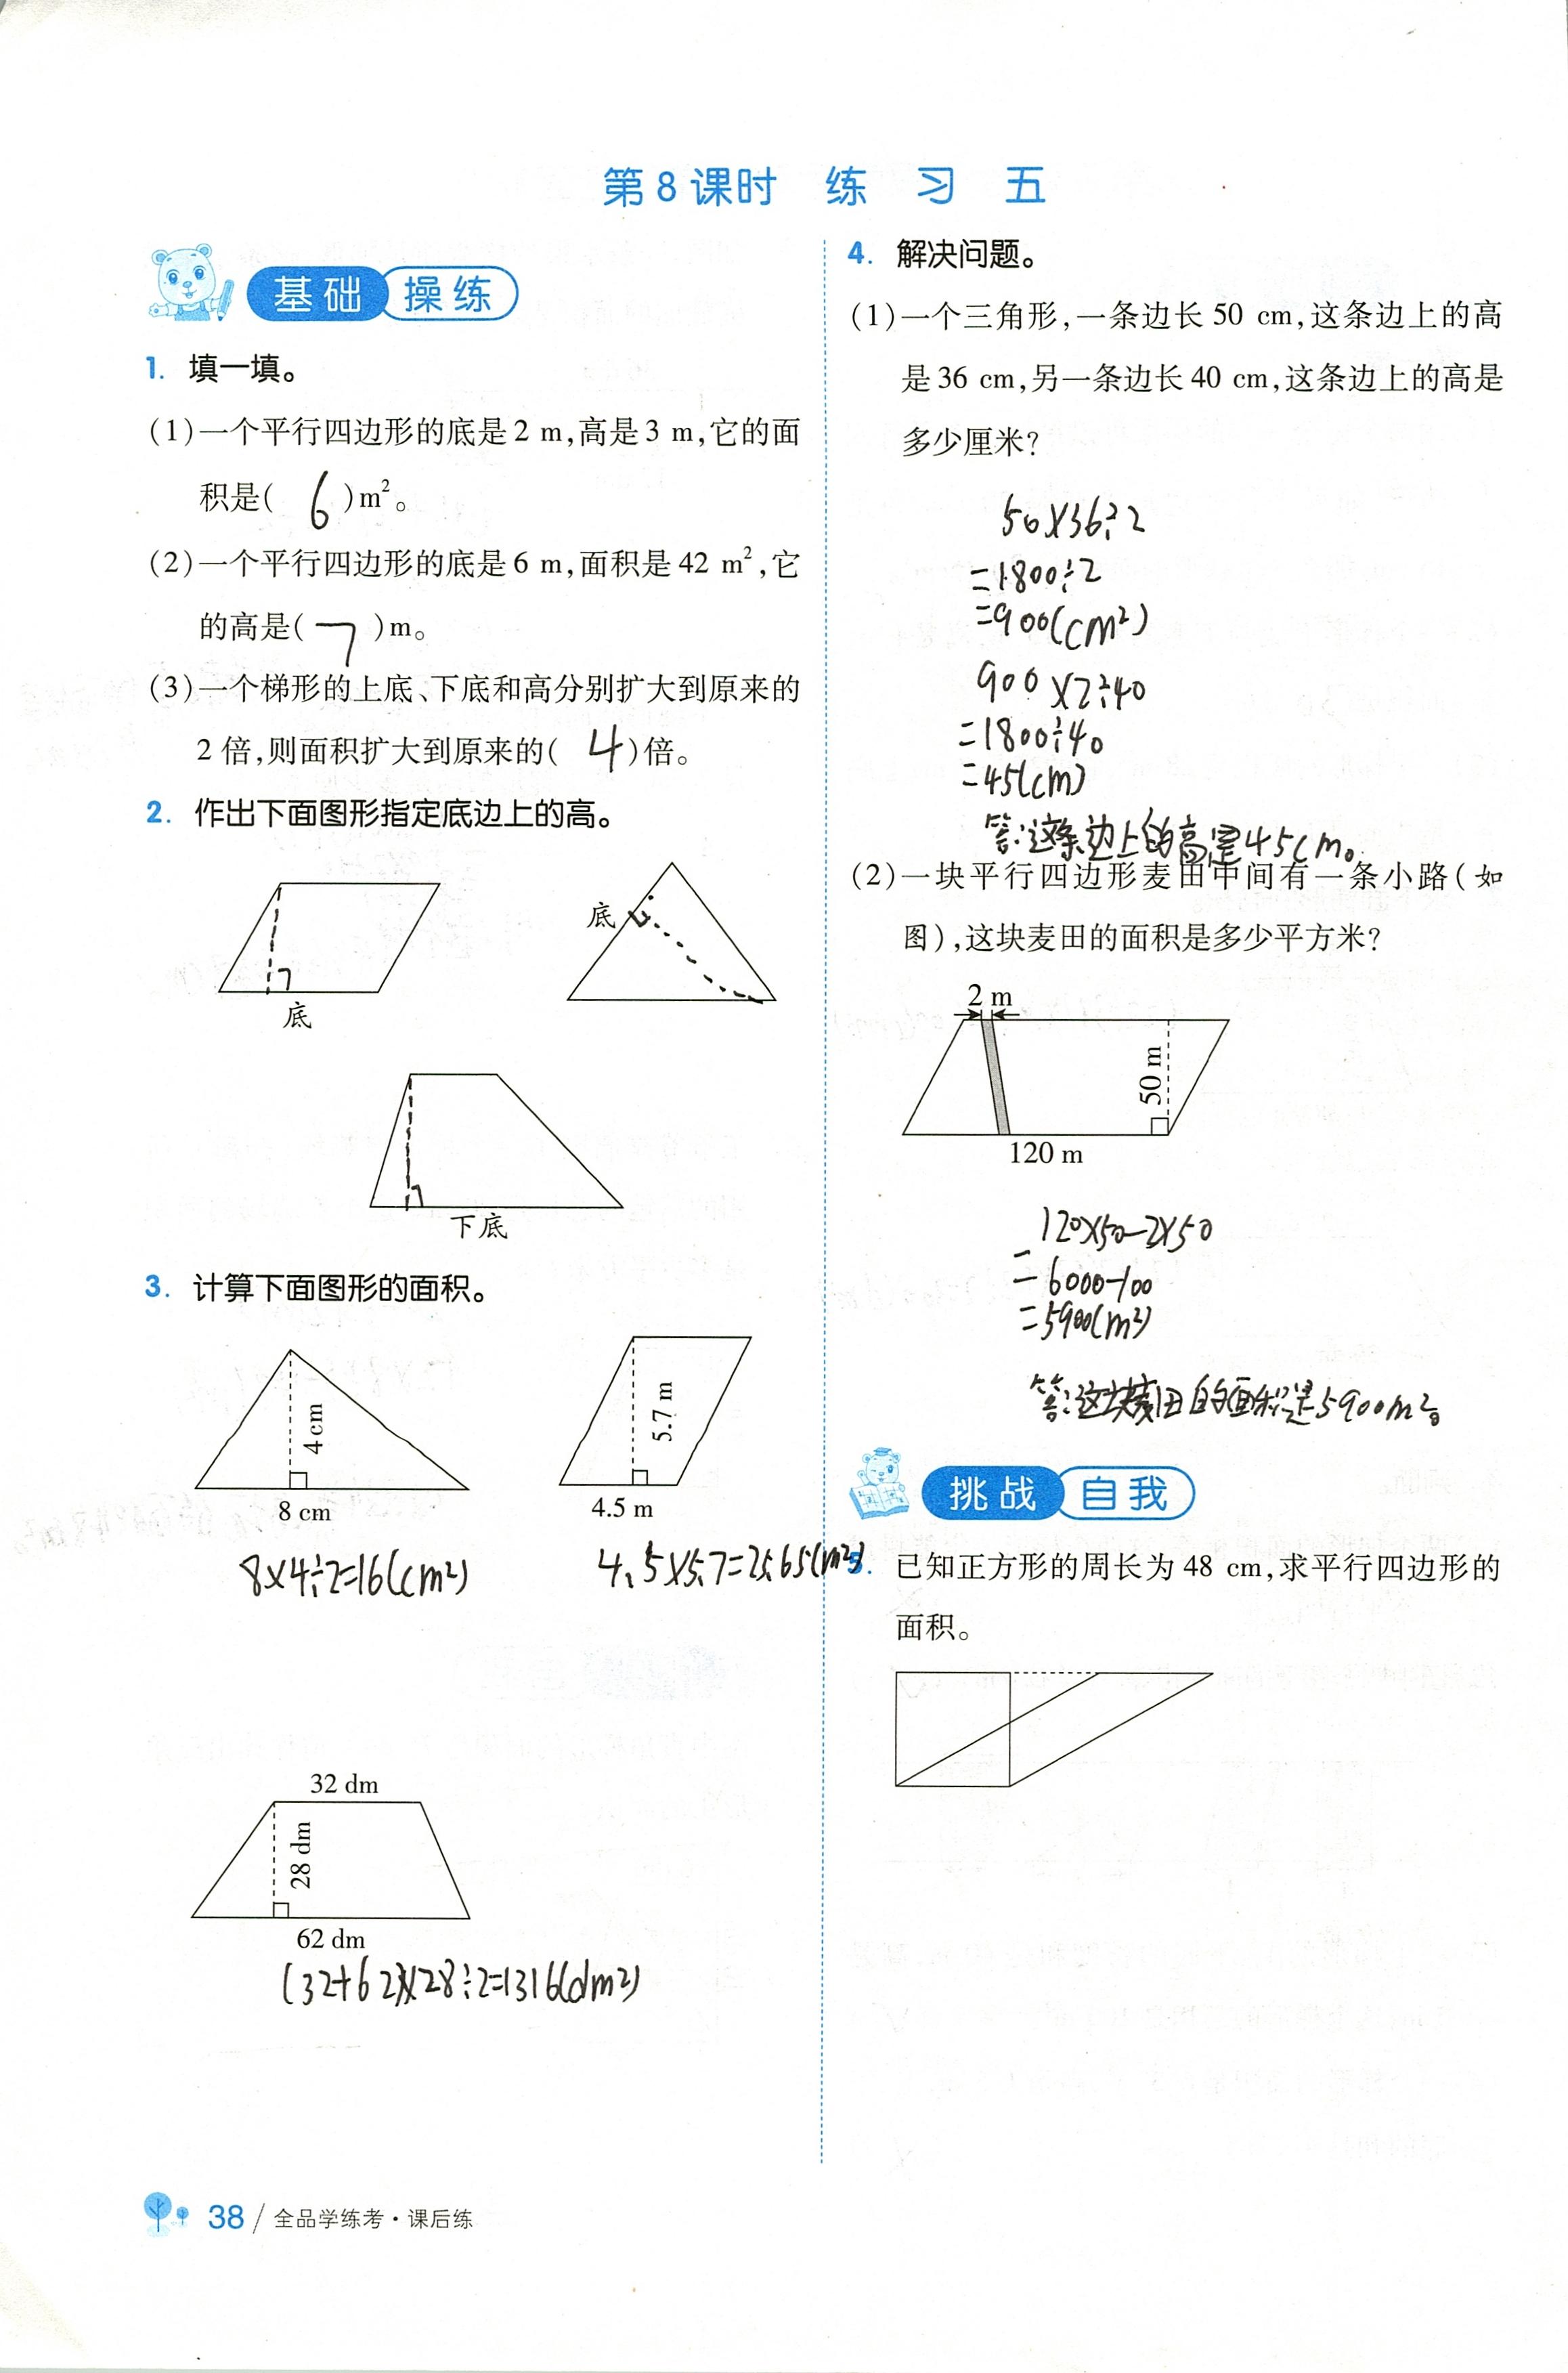 第8课时 练 习 五
基础 操练
1. 填一填。
(1)一个平行四边形的底是2 m,高是3 m,它的面
积是( 6 )m²。
(2)一个平行四边形的底是6 m,面积是42 m²,它
的高是( 7 )m。
(3)一个梯形的上底、下底和高分别扩大到原来的
2倍,则面积扩大到原来的( 4 )倍。
2. 作出下面图形指定底边上的高。
底
底
下底
3. 计算下面图形的面积。
4 cm
8 cm
5.7 m
4.5 m
8×4÷2=16(cm²)
4.5×5.7=25.65(m²)
32 dm
28 dm
62 dm
(32+62)×28÷2=1316(dm²)
4. 解决问题。
(1)一个三角形,一条边长50 cm,这条边上的高
是36 cm,另一条边长40 cm,这条边上的高是
多少厘米?
50×36÷2
=1800÷2
=900(cm²)
900×2÷40
=1800÷40
=45(cm)
答:这条边上的高是45cm。
(2)一块平行四边形麦田中间有一条小路(如
图),这块麦田的面积是多少平方米?
2 m
50 m
120 m
120×50-2×50
=6000-100
=5900(m²)
答:这块麦田的面积是5900m²。
挑战 自我
5. 已知正方形的周长为48 cm,求平行四边形的
面积。
38/全品学练考·课后练